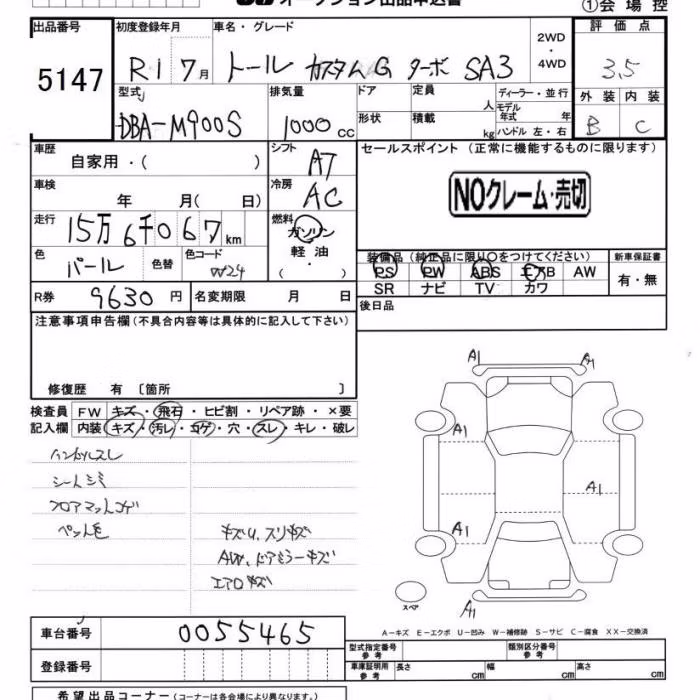 オークション出品申込書
①会場控
出品番号 初度登録年月 車名・グレード 2WD ・ 4WD 評価点
5147 R1 7月 トール カスタムG ターボ SA3 3.5
型式 排気量 ドア 定員 人 ディーラー・並行 外装 内装
DBA-M900S 1000cc 形状 積載 kg モデル年式 年 ハンドル 左・右 B C
車歴 自家用・( ) シフト AT セールスポイント (正常に機能するものに限ります)
車検 年 月( 日) 冷房 AC NOクレーム・売切
走行 15万6千067km 燃料 ガソリン・軽油・( )
色 パール 色替 色コード W24 装備品 (純正品に限り○をつけてください) 新車保証書
PS PW ABS エアB AW 有・無
SR ナビ TV カワ
R券 9630円 名変期限 月 日 後日品
注意事項申告欄(不具合内容等は具体的に記入して下さい)
修復歴 有 〔箇所 〕
検査員記入欄 FW キズ・飛石・ヒビ割・リペア跡・×要
内装 キズ・汚レ・コゲ・穴・スレ・キレ・破レ
ハンドルスレ
シートシミ
フロアマットコゲ
ペット毛 キズU、スリキズ
AW、ドアミラーキズ
エアロキズ
A1 A1
A1
A1
A1
A1
スペア
A-キズ E-エクボ U-凹み W-補修跡 S-サビ C-腐食 XX-交換済
車台番号 0055465
型式指定番号 参考 類別区分番号 参考
登録番号 車庫証明用 参考 長さ cm 幅 cm 高さ cm
希望出品コーナー(コーナーは各会場により異なります。)